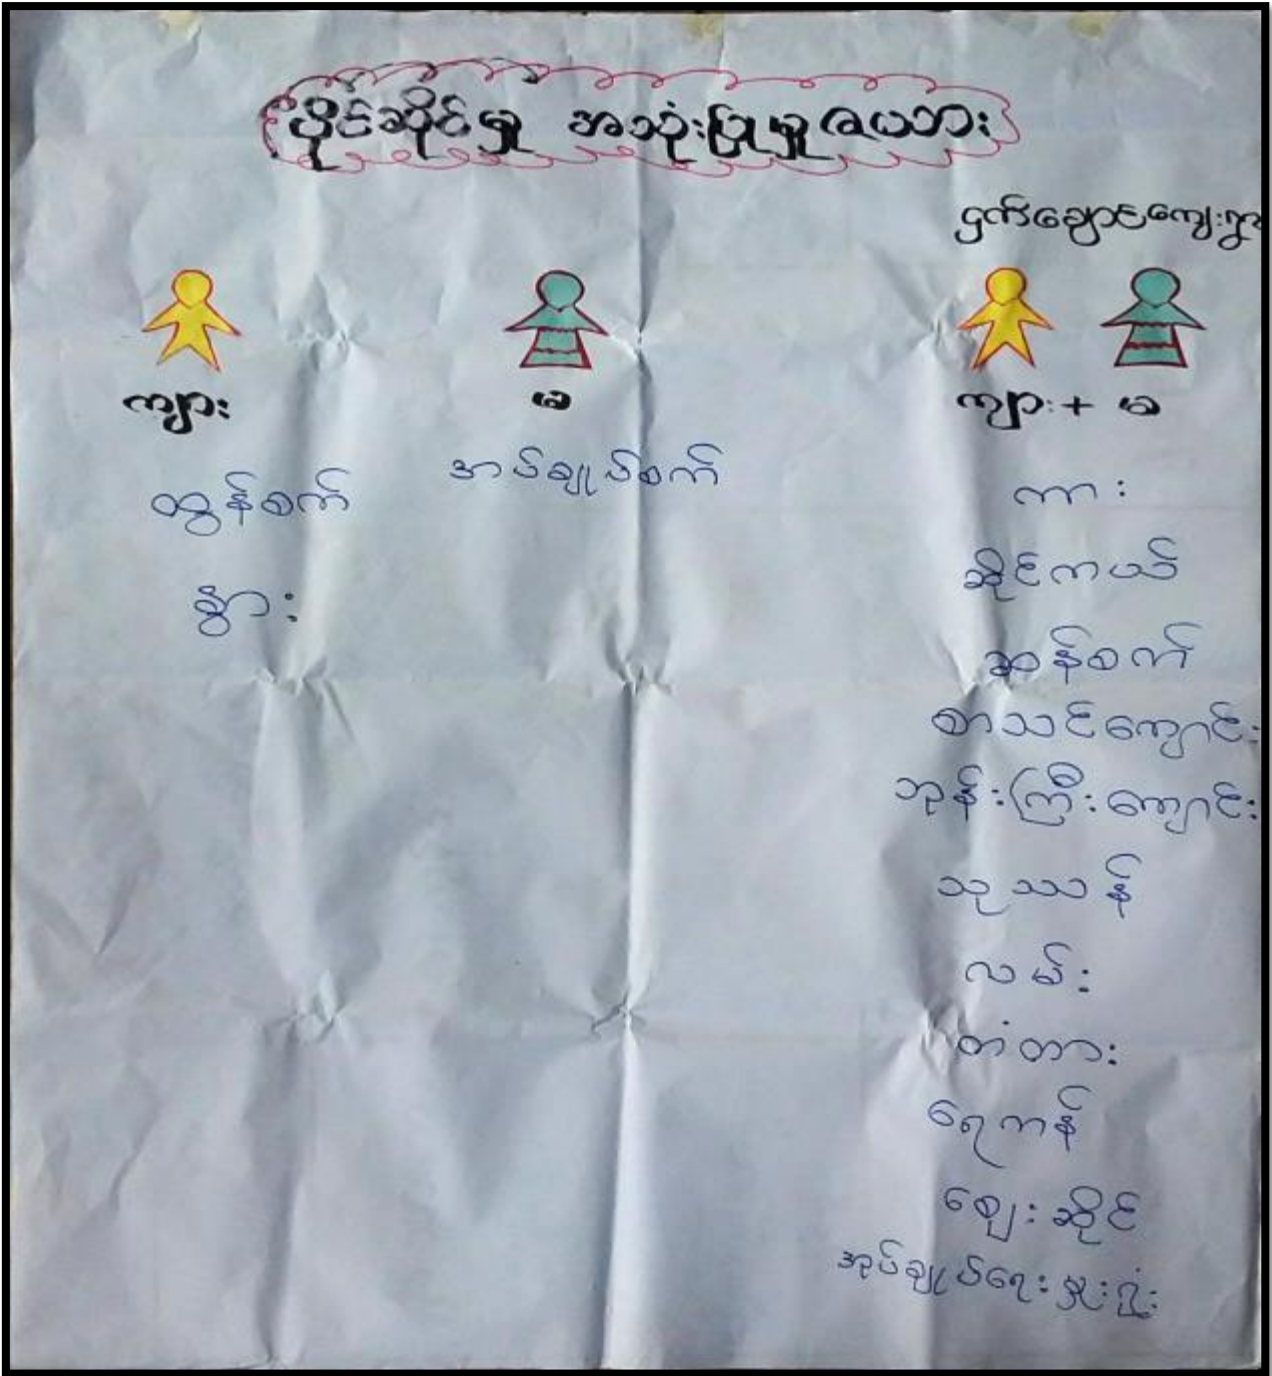 ပိုင်ဆိုင်မှု အသုံးပြုမှုဇယား
ငှက်ချောင်ကျေးရွာ
ကျား
မ
ကျား + မ
ထွန်စက်
နွား
အပ်ချုပ်စက်
ကား
ဆိုင်ကယ်
ဆန်စက်
စာသင်ကျောင်း
ဘုန်းကြီးကျောင်း
သုဿာန်
လမ်း
တံတား
ရေကန်
ဈေးဆိုင်
အုပ်ချုပ်ရေးမှူးရုံး